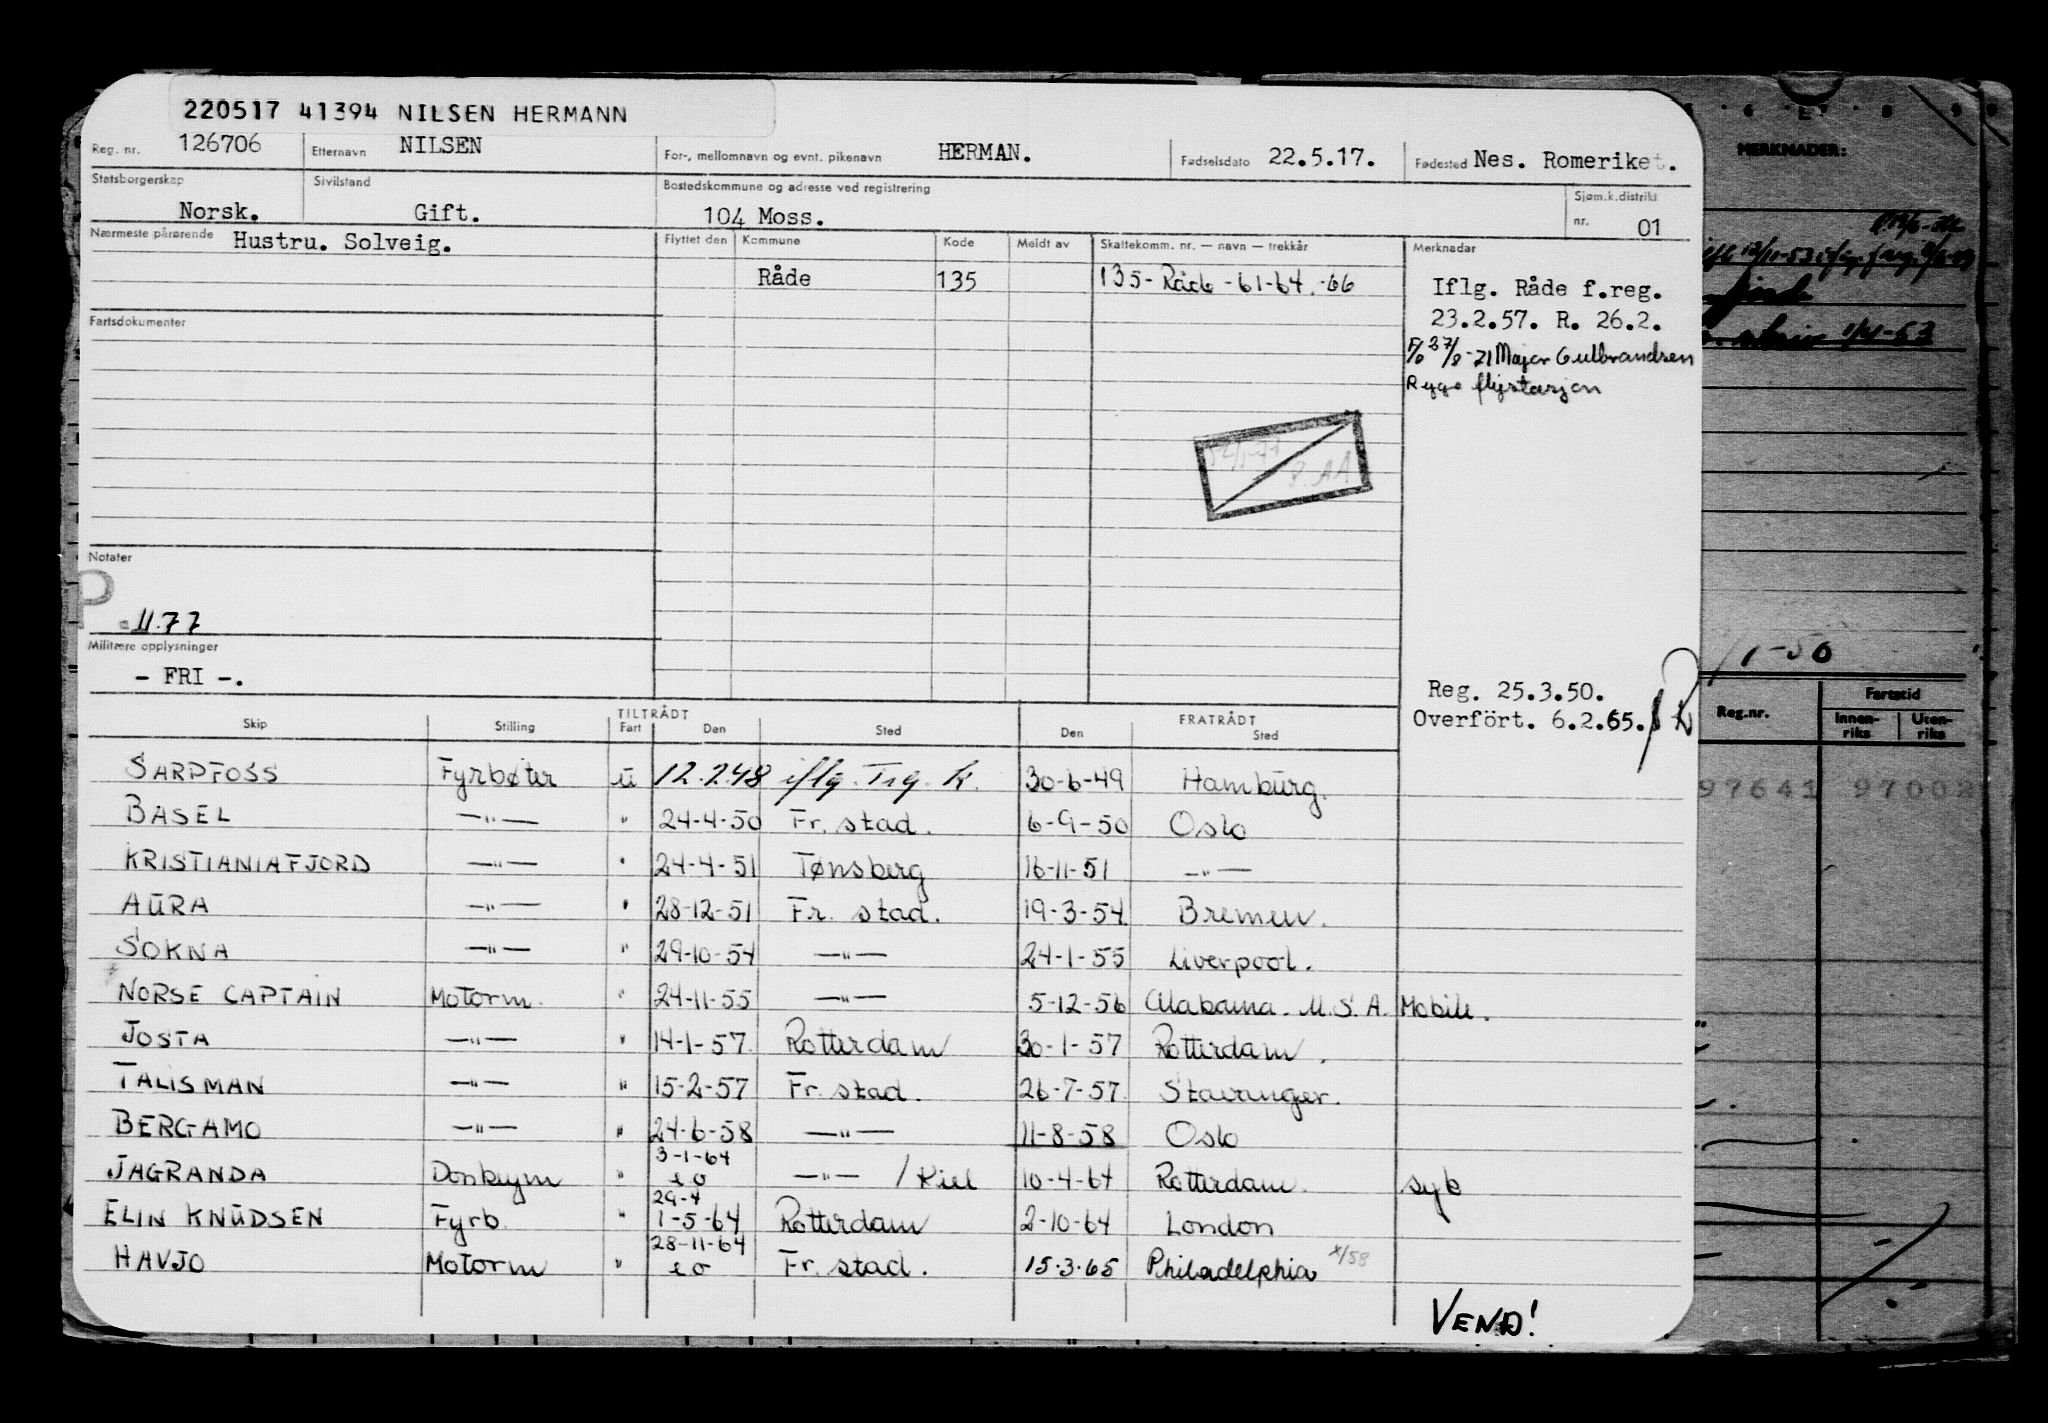 220517 41394 NILSEN HERMANN
Reg. nr. 126706 Etternavn NILSEN For-, mellomnavn og evnt. pikenavn HERMAN. Fødselsdato 22.5.17. Fødested Nes. Romeriket.
Statsborgerskap Sivilstand Bostedskommune og adresse ved registrering Sjøm.k.distrikt
Norsk. Gift. 104 Moss. nr. 01
Nærmeste pårørende Hustru. Solveig. Flyttet den Kommune Kode Meldt av Skattekomm. nr. — navn — trekkår Merknader
Råde 135 135- Råde -61-64.-66 Iflg. Råde f.reg.
Fartsdokumenter 23.2.57. R. 26.2.
27/8-71 Major Gulbrandsen
Rygge flystasjon
Notater
P
11.77
Militære opplysninger
- FRI -.
Reg. 25.3.50.
Overfört. 6.2.65.
TILTRÅDT FRATRÅDT
Skip Stilling Fart Den Sted Den Sted
SARPFOSS Fyrbøter u 12.2.48 iflg. Trg. k. 30-6-49 Hamburg.
BASEL —"— " 24-4-50 Fr. stad. 6-9-50 Oslo
KRISTIANIAFJORD —"— " 24-4-51 Tønsberg 16-11-51 —"—
AURA —"— " 28-12-51 Fr. stad. 19-3-54 Bremen.
SOKNA —"— " 29-10-54 —"— 24-1-55 Liverpool.
NORSE CAPTAIN Motorm. " 24-11-55 —"— 5-12-56 Alabama. U.S.A. Mobile.
JOSTA —"— " 14-1-57 Rotterdam 30-1-57 Rotterdam.
TALISMAN —"— " 15-2-57 Fr. stad. 26-7-57 Stavanger.
BERGAMO —"— " 24-6-58 —"— 11-8-58 Oslo
3-1-64
JAGRANDA Donkeym " e o —"— / Kiel 10-4-64 Rotterdam. syk
29-4
ELIN KNUDSEN Fyrb. " 1-5-64 Rotterdam 2-10-64 London
28-11-64
HAVJO Motorm " e o Fr. stad. 15.3.65 Philadelphia x/58
VEND!
MERKNADER:
1-50
Reg.nr. Fartstid
Innen-riks Uten-riks
97641 97002